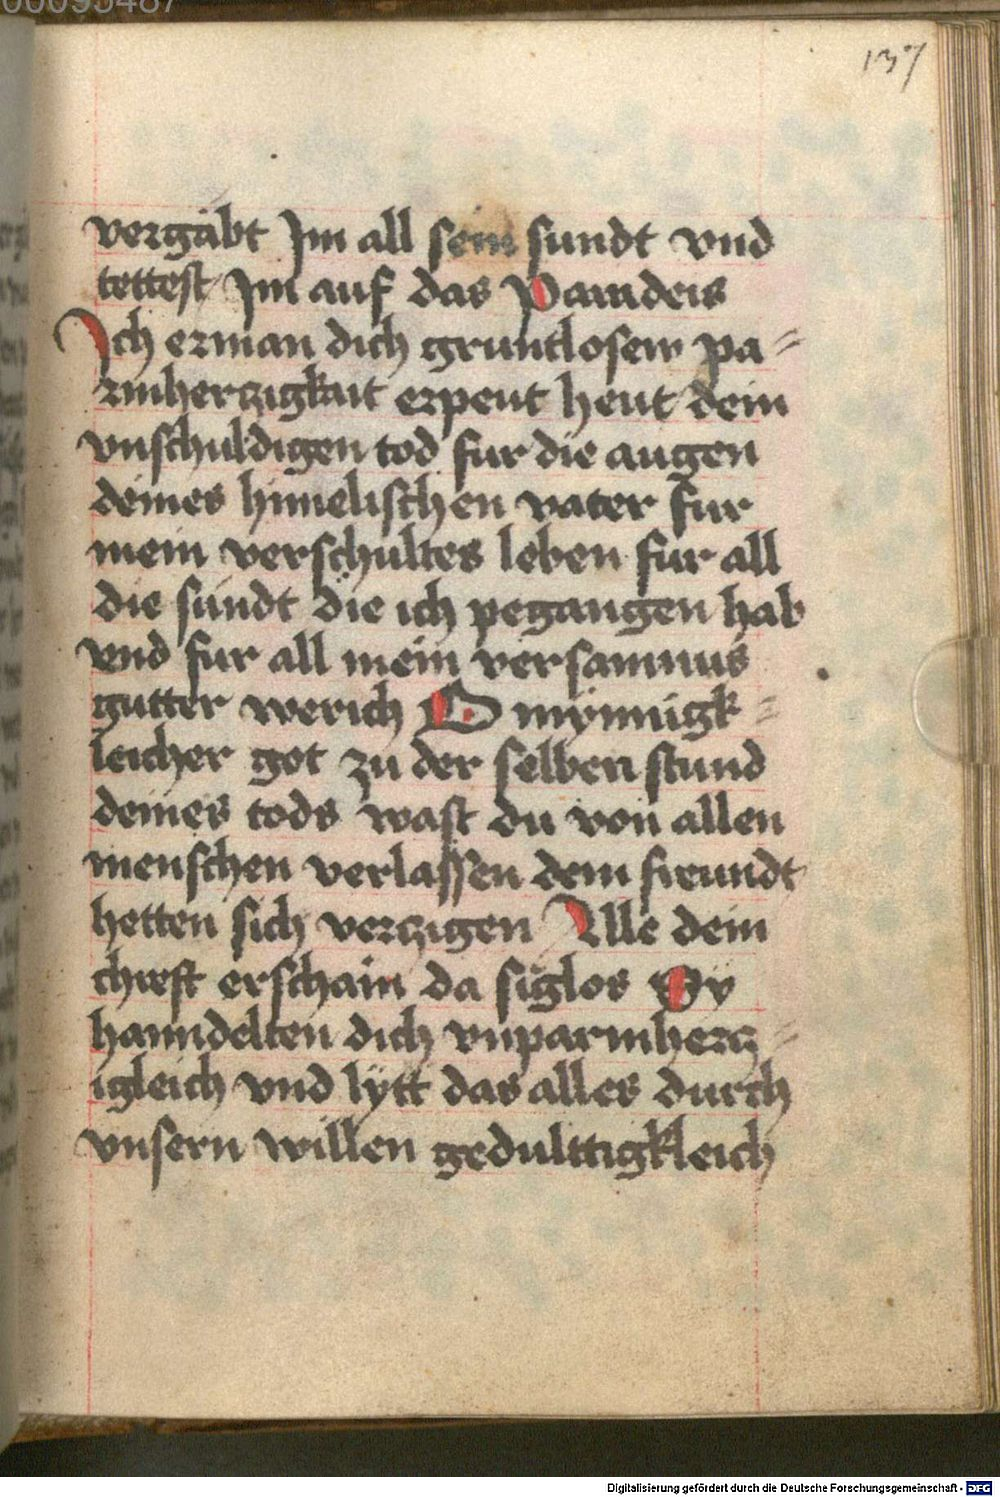 00095487
137
vergäbt Im all sein sundt vnd
tettest Im auf das Paradeis
Ich erman dich gruntlosew pa=
rmherczigkait erpeut heut dein
vnschuldigen tod fur die augen
deines himelischen vater fur
mein verschultes leben fur all
die sündt die ich pegangen hab
vnd fur all mein versaumnus
gutter werich O mynnigk=
leicher got zu der selben stund
deines tods wast du von allen
menschen verlassen dein freundt
hetten sich verczigen Alle dein
chreft erschain da siglos Sy
hanndelten dich vnparmhercz=
igleich vnd lytt das alles durch
vnsern willen gedulttigkleich
Digitalisierung gefördert durch die Deutsche Forschungsgemeinschaft - DFG